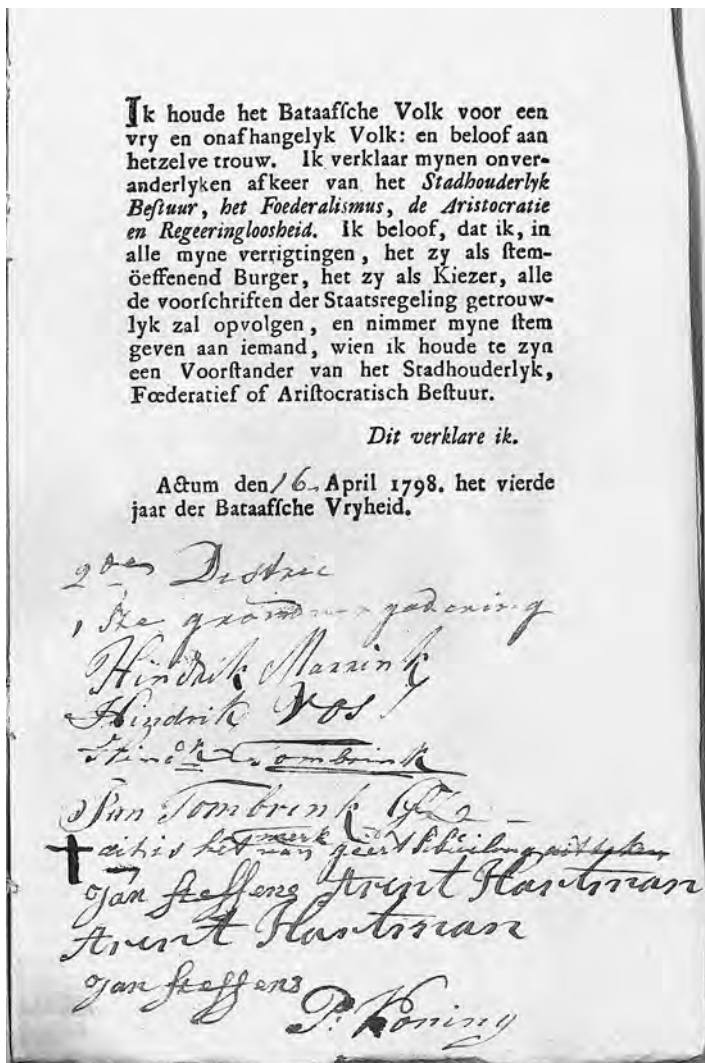 Ik houde het Bataafſche Volk voor een
vry en onafhangelyk Volk: en beloof aan
hetzelve trouw. Ik verklaar mynen onver-
anderlyken afkeer van het Stadhouderlyk
Beſtuur, het Foederalismus, de Aristocratie
en Regeeringloosheid. Ik beloof, dat ik, in
alle myne verrigtingen, het zy als ſtem-
öeffenend Burger, het zy als Kiezer, alle
de voorſchriften der Staatsregeling getrouw-
lyk zal opvolgen, en nimmer myne ſtem
geven aan iemand, wien ik houde te zyn
een Voorſtander van het Stadhouderlyk,
Fœderatief of Ariſtocratisch Beſtuur.
Dit verklare ik.
Actum den 16 April 1798. het vierde
jaar der Bataafſche Vryheid.
2den Distric
1 ste
Hindrik Marrink
Hindrik Vos
Tombrink
Jan Tombrink
dit is het merk van geert
Jan steffens Arent Hartman
Arent Hartman
Jan steffens
P. Koning